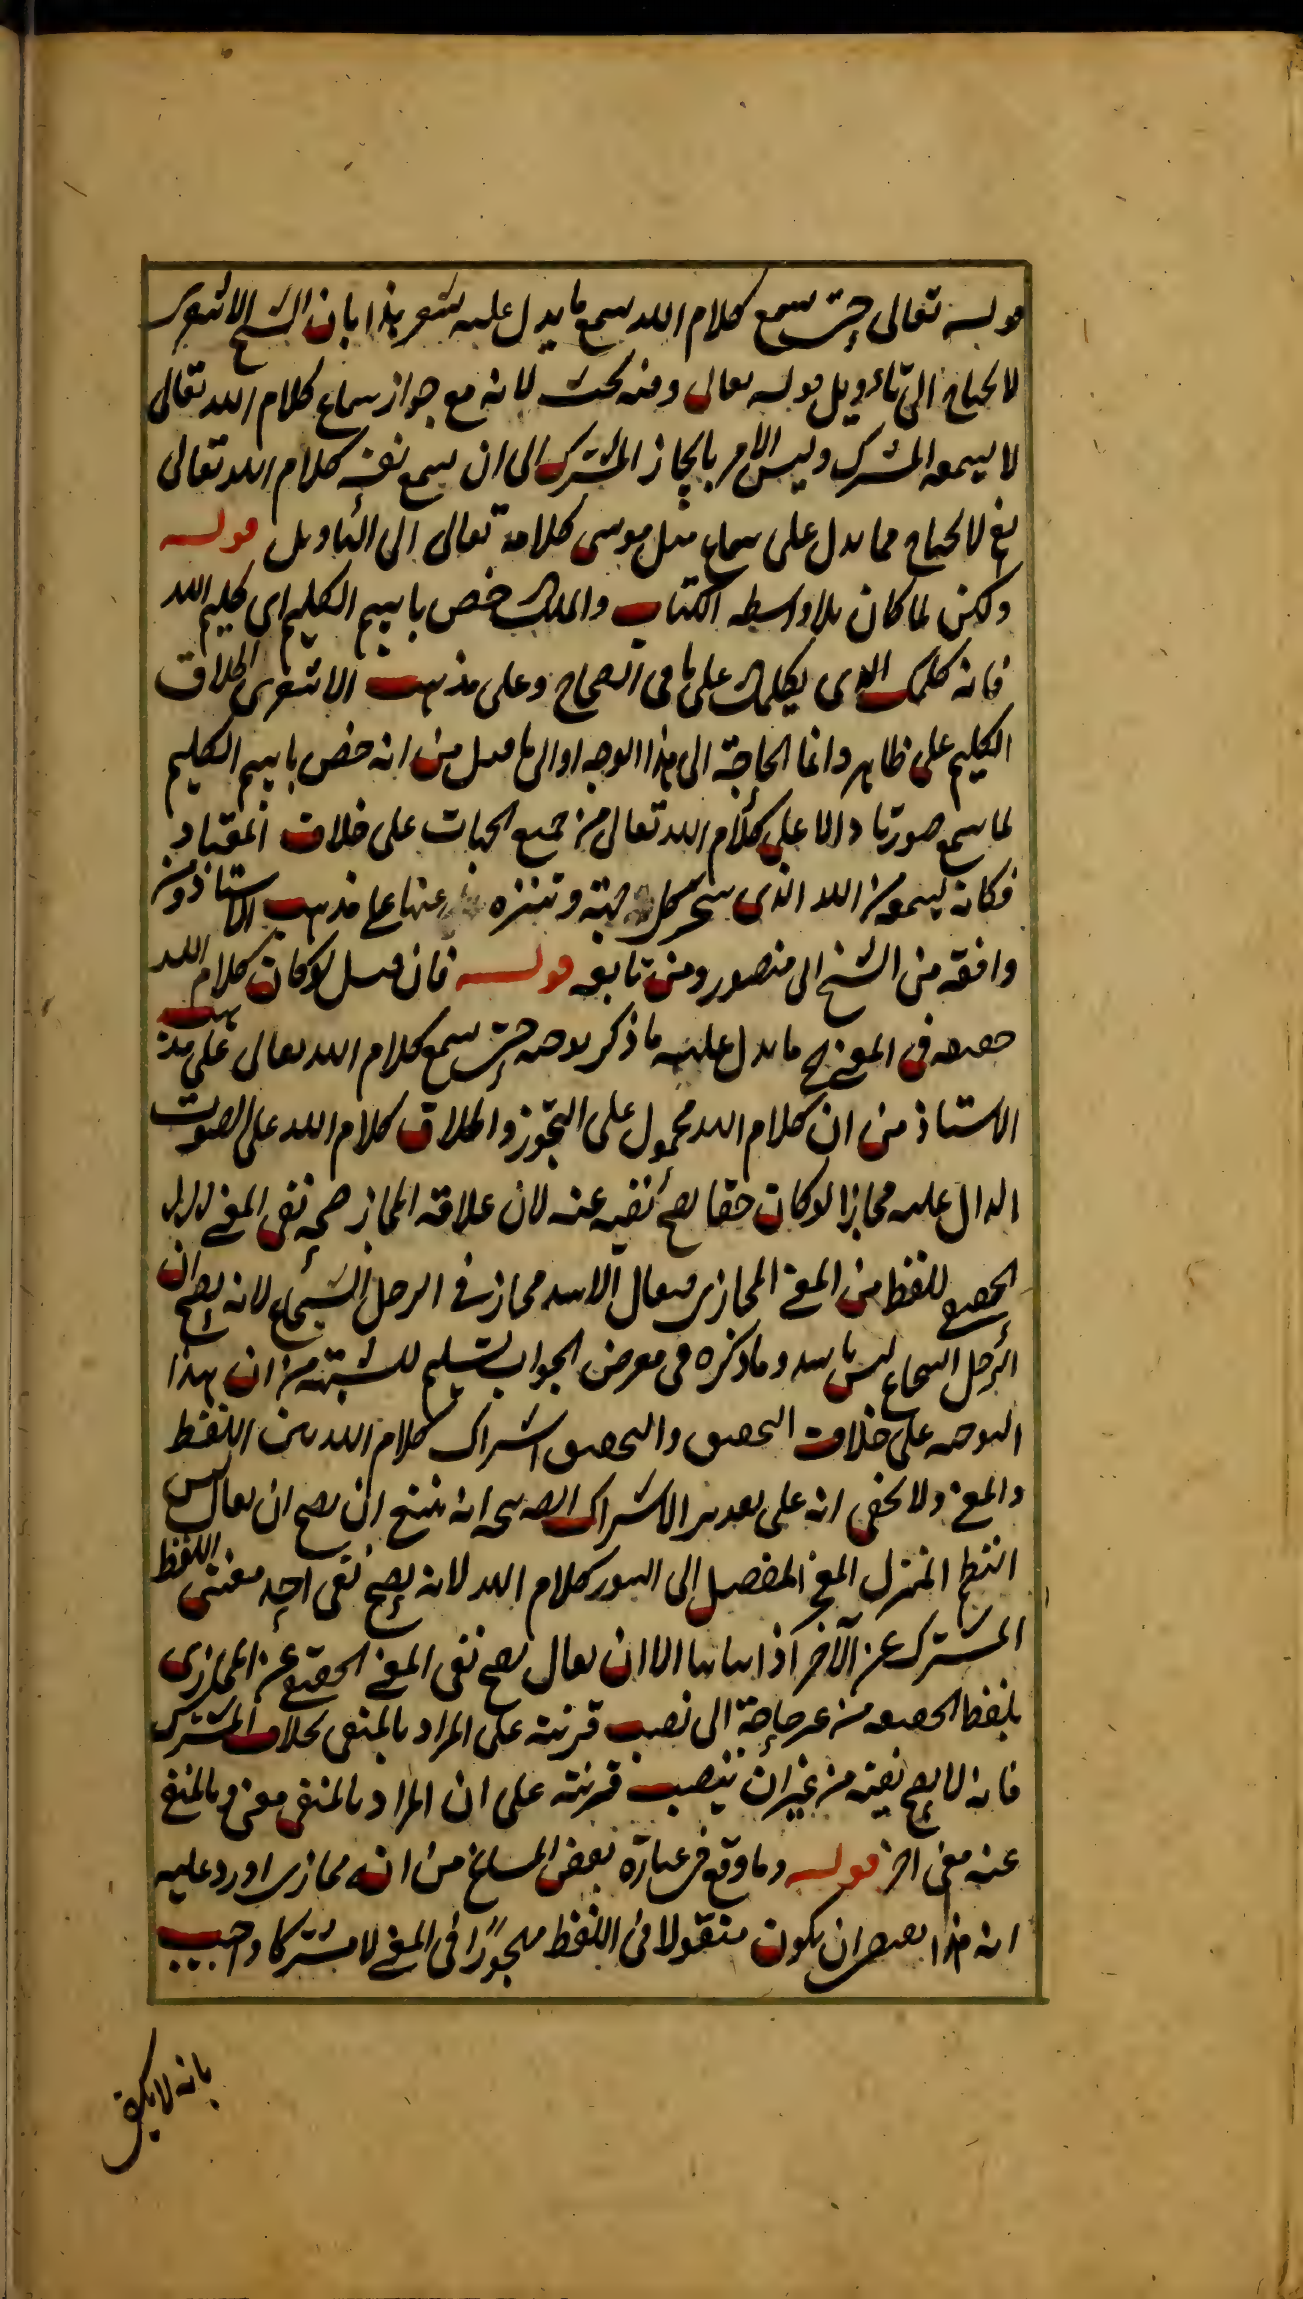 قوله تعالى حتى يسمع كلام الله يسمع ما يدل عليه يشعر هذا بان الشيخ الاشعرى
لا يحتاج الى تاويل قوله تعالى وفيه بحث لانه مع جواز سماع كلام الله تعالى
لا يسمعه المشرك وليس الامر بالجاز المشرك الى ان يسمع نفس كلام الله تعالى
نعم لا يحتاج مما يدل على سماع مثل موسى كلامه تعالى الى التاويل قوله
ولكن لما كان بلا واسطة الكتاب والملك خص باسم الكليم اى كليم الله
فانه كلمك الذى يكلمك على ما فى الصحاح وعلى مذهب الاشعرى اطلاق
الكليم على ظاهره وانما الحاجة الى هذا الوجه او الى ما قيل من انه خص باسم الكليم
لما سمع صوتا دالا على كلام الله تعالى من جميع الجهات على خلاف المعتاد
فكانه يسمعه من الله الذى كل جهة وتنزه عنها على مذهب الاستاذ ومن
وافقه من الشيخ ابى منصور ومن تابعه قوله فان قيل لو كان كلام الله
حقيقة فى المعنى ما يدل عليه ما ذكر توجيه حتى يسمع كلام الله تعالى على مذهب
الاستاذ من ان كلام الله محمول على التجوز واطلاق كلام الله على الصوت
الدال عليه مجازا لو كان حقا يصح نفيه عنه لان علاقة المجاز صحة نفى المعنى
الحقيقى للفظ من المعنى المجازى فيقال الاسد مجاز فى الرجل الشجاع لانه يصح ان
الرجل الشجاع ليس باسد وما ذكره فى معرض الجواب تسليم للشبهة من ان هذا
التوجيه على خلاف التحقيق والتحقيق اشتراك كلام الله بين اللفظ
والمعنى ولا يخفى انه على تقدير الاشتراك انه يمتنع ان يصح ان يقال ليس
النظم المنزل المعجز المفصل الى السور كلام الله لانه يصح نفى احد معنيى اللفظ
المشترك عن الآخر اذا الا ان يقال يصح نفى المعنى الحقيقى عن المجازى
بلفظ الحقيقة من غير حاجة الى نصب قرينة على المراد بالمنفى بخلاف المشترك
فانه لا يصح نفيه من غير ان ينصب قرينة على ان المراد بالمنفى معنى وبالمنفى
عنه معنى اخر قوله وما وقع فى عبارة بعض المشايخ من انه مجازى اورد عليه
انه هذا يقتضى ان يكون منقولا فى اللفظ مهجورا فى المعنى لا مشتركا واجيب
بانه لا يكفى